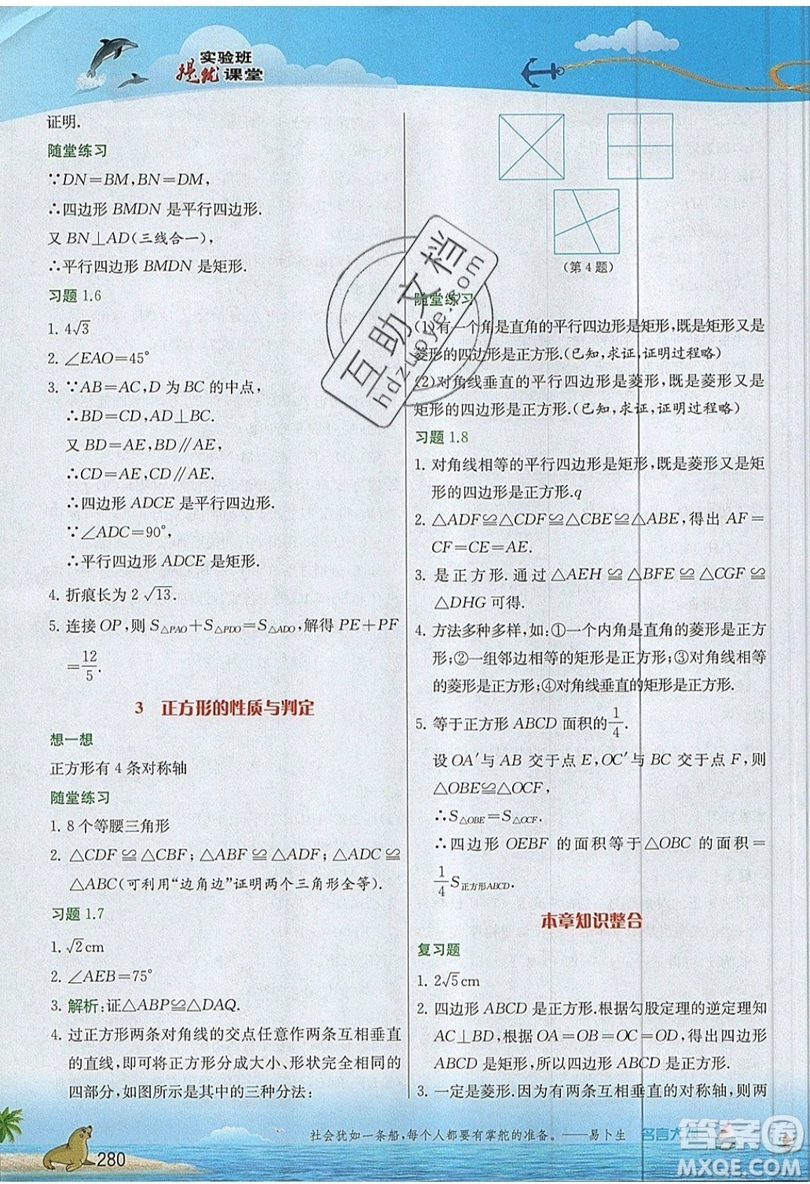 实验班
提优课堂
证明.
随堂练习
∵DN=BM,BN=DM,
∴四边形 BMDN 是平行四边形.
又 BN⊥AD(三线合一),
∴平行四边形 BMDN 是矩形.
习题 1.6
1. 4√3
2. ∠EAO=45°
3. ∵AB=AC,D 为 BC 的中点,
∴BD=CD,AD⊥BC.
又∵BD=AE,BD∥AE,
∴CD=AE,CD∥AE.
∴四边形 ADCE 是平行四边形.
∵∠ADC=90°,
∴平行四边形 ADCE 是矩形.
4. 折痕长为 2√13.
5. 连接 OP,则 S△PAO+S△PDO=S△ADO,解得 PE+PF
=12/5.
3 正方形的性质与判定
想一想
正方形有 4 条对称轴
随堂练习
1. 8 个等腰三角形
2. △CDF≌△CBF;△ABF≌△ADF;△ADC≌
△ABC(可利用“边角边”证明两个三角形全等)
习题 1.7
1. √2cm
2. ∠AEB=75°
3. 解析:证△ABP≌△DAQ.
4. 过正方形两条对角线的交点任意作两条互相垂直
的直线,即可将正方形分成大小、形状完全相同的
四部分,如图所示是其中的三种分法:
(第 4 题)
随堂练习
(1)有一个角是直角的平行四边形是矩形,既是矩形又是
菱形的四边形是正方形.(已知,求证,证明过程略)
(2)对角线垂直的平行四边形是菱形,既是菱形又是
矩形的四边形是正方形.(已知,求证,证明过程略)
习题 1.8
1. 对角线相等的平行四边形是矩形,既是菱形又是矩
形的四边形是正方形.q
2. △ADF≌△CDF≌△CBE≌△ABE,得出 AF=
CF=CE=AE.
3. 是正方形. 通过证△AEH≌△BFE≌△CGF≌
△DHG 可得.
4. 方法多种多样,如:①一个内角是直角的菱形是正方
形;②一组邻边相等的矩形是正方形;③对角线相等
的菱形是正方形;④对角线垂直的矩形是正方形.
5. 等于正方形 ABCD 面积的1/4.
设 OA′与 AB 交于点 E,OC′与 BC 交于点 F,则
△OBE≌△OCF,
∴S△OBE=S△OCF.
∴四边形 OEBF 的面积等于△OBC 的面积=
1/4S正方形ABCD.
本章知识整合
复习题
1. 2√5cm
2. 四边形 ABCD 是正方形.根据勾股定理的逆定理知
AC⊥BD,根据 OA=OB=OC=OD,得出四边形
ABCD 是矩形,所以四边形 ABCD 是正方形.
3. 一定是菱形.因为有两条互相垂直的对称轴,则两
280
社会犹如一条船,每个人都要有掌舵的准备。——易卜生
互助文档
hdzuoye.com
答案圈
MXQE.COM